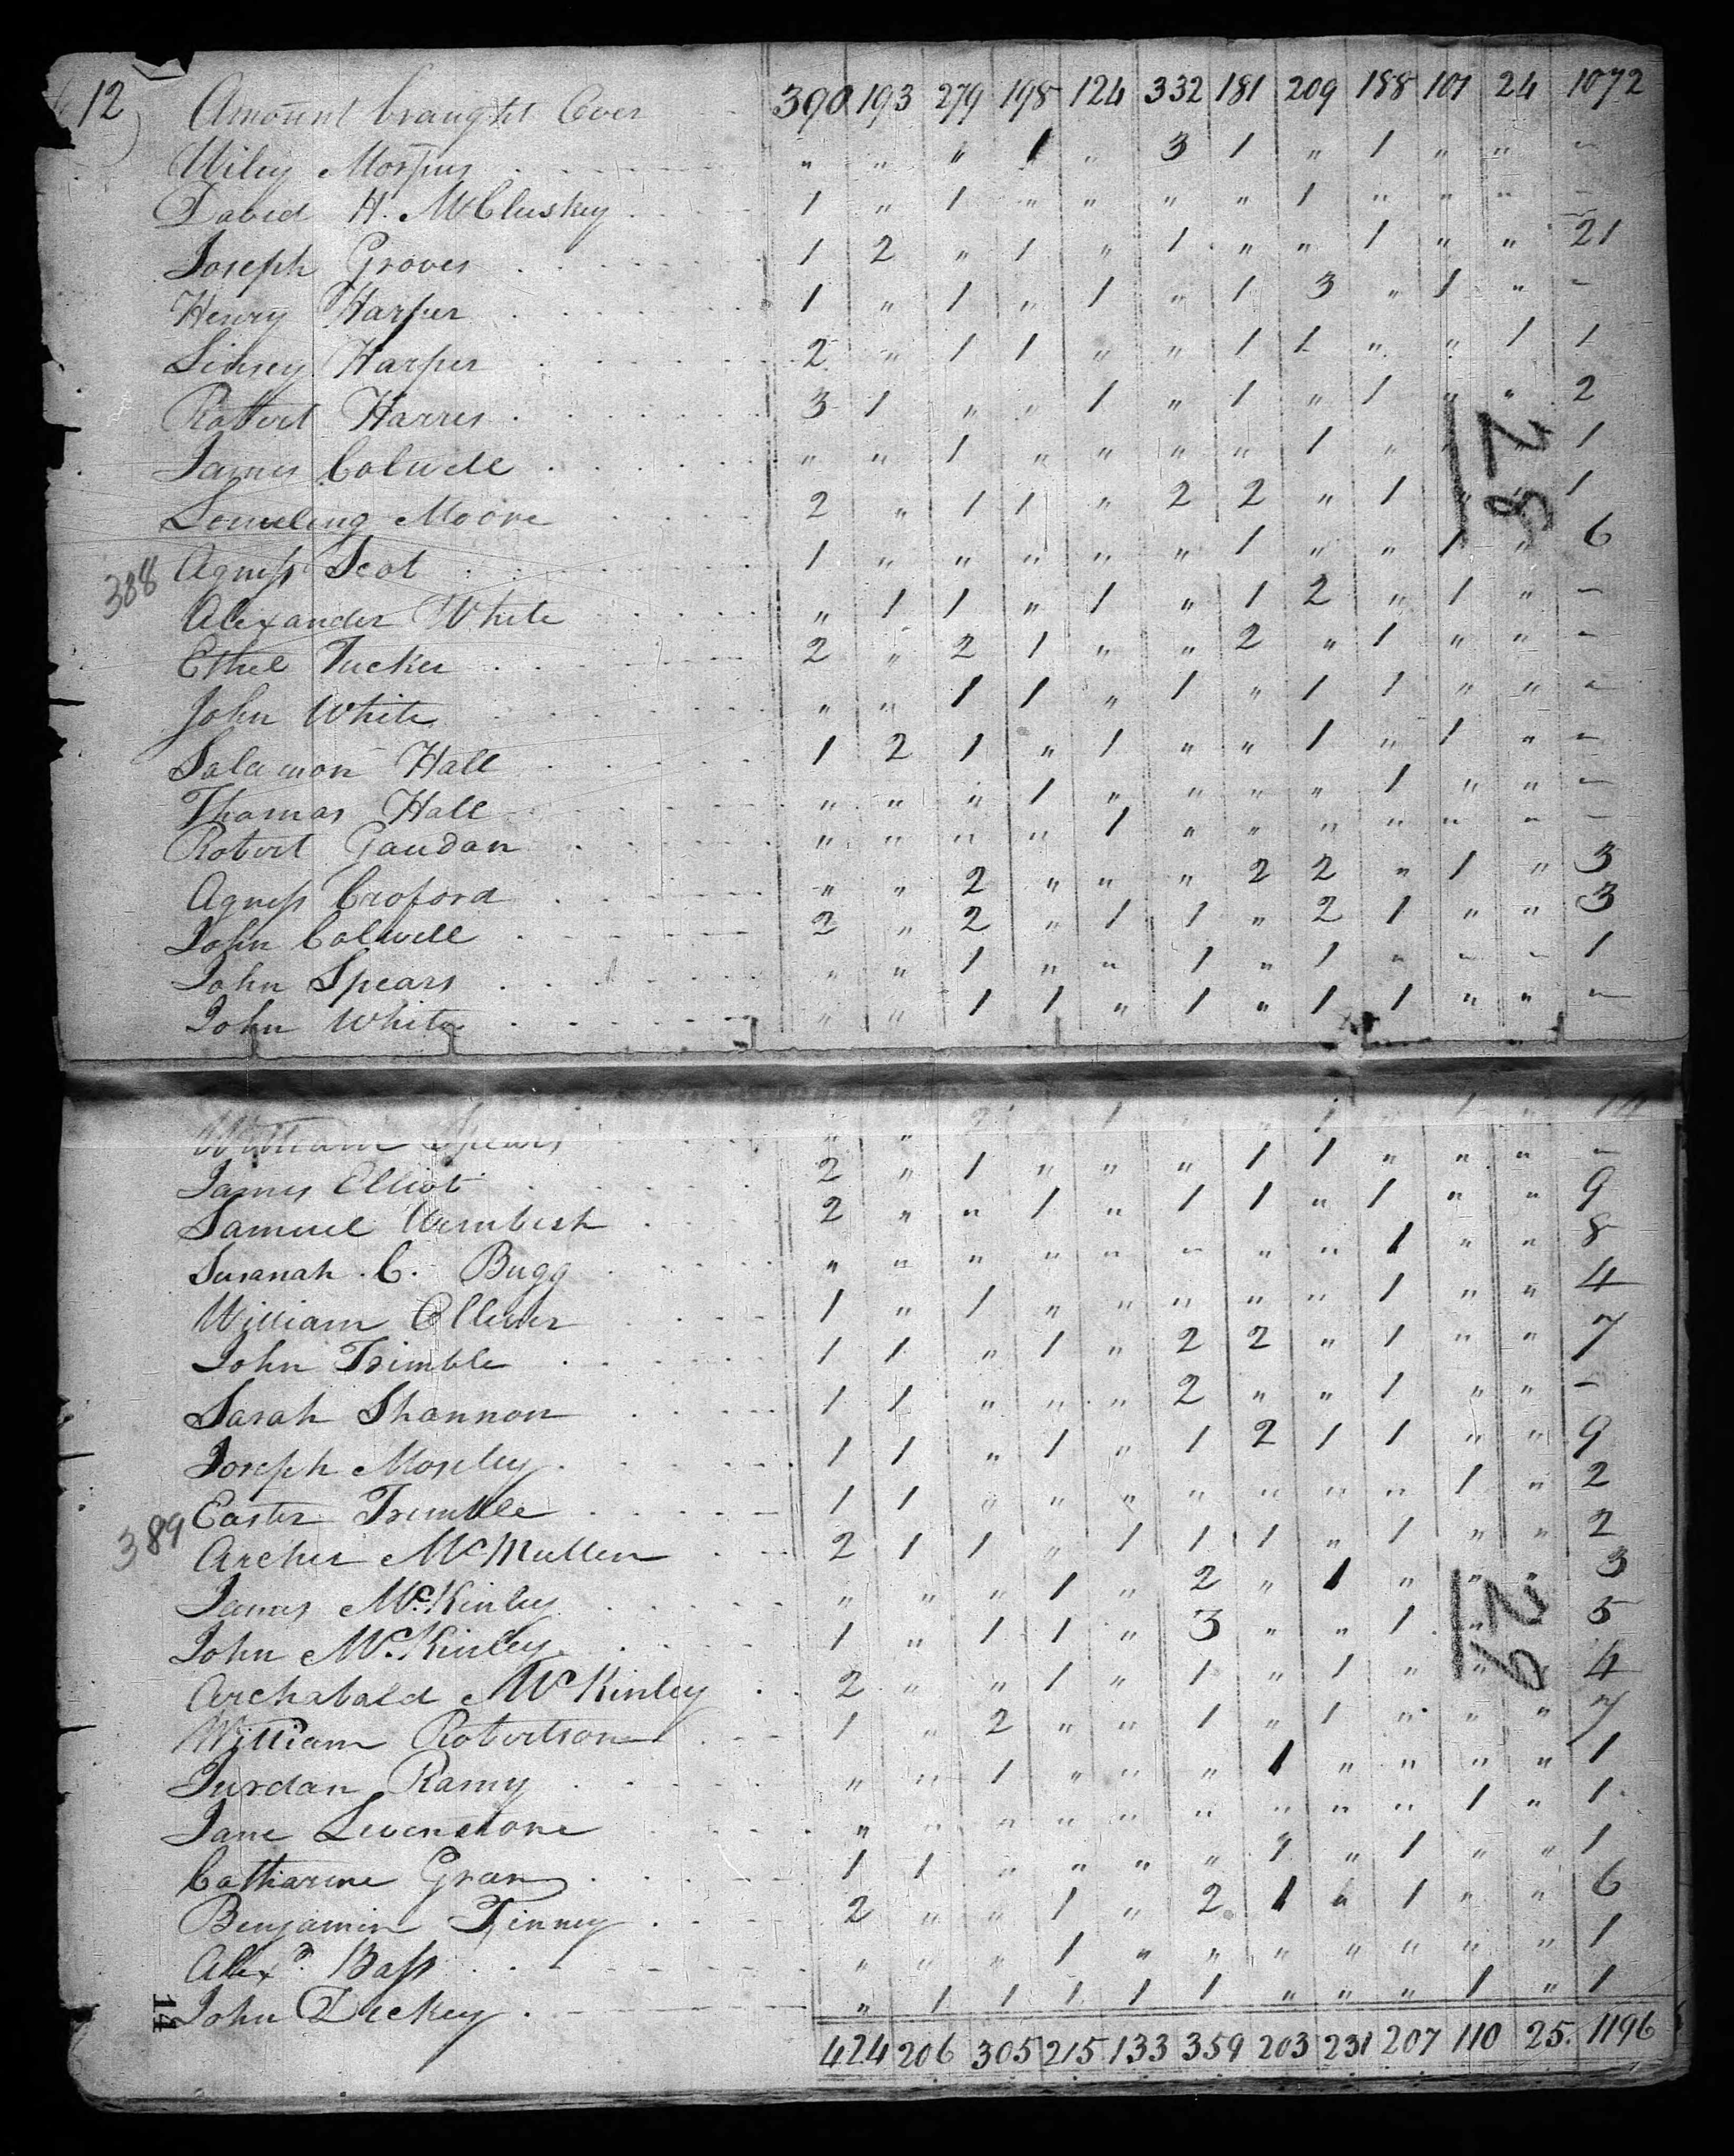 12 Amount brought Over 390 193 279 198 124 332 181 209 188 101 24 1072
Wiley " " " 1 " 3 1 " 1 " " -
David H. McCluskey 1 " 1 " " " " 1 " " " -
Joseph Groves 1 2 " 1 " 1 " " 1 " " 21
Henry Harper 1 " 1 " 1 " 1 3 " 1 " -
Linsey Harper 2 " 1 1 " " 1 1 " " 1 1
Robert Harris 3 1 " " 1 " 1 " 1 " " 2
28
James Colwell " " 1 " " " " 1 " " " 1
Moore 2 " 1 1 " 2 2 " 1 " " 1
Agness Scot 1 " " " " " 1 " " 1 " 6
388
Alexander White " 1 1 " 1 " 1 2 " 1 " -
Ethel Tucker 2 " 2 1 " " 2 " 1 " " -
John White " " 1 1 " 1 " 1 1 " " -
Salamon Hall 1 2 1 " 1 " " 1 " 1 " -
Thomas Hall " " " 1 " " " " 1 " " -
Robert Gaudan " " " " 1 " " " " " " -
Agness Croford " " 2 " " " 2 2 " 1 " 3
John Colwell 2 " 2 " 1 1 " 2 1 " " 3
John Spears " " 1 " " 1 " 1 " " " 1
John White " " 1 1 " 1 " 1 1 " " -
William Spears " " 2 1 " 1 1 "
James Elliot 2 " 1 " " " 1 1 " " " -
Samuel Wimbish 2 " " 1 " 1 1 " 1 " " 9
Susanah . C. Bugg " " " " " " " " 1 " " 8
William Olliver 1 " 1 " " " " " 1 " " 4
John Trimble 1 1 " 1 " 2 2 " 1 " " 7
Sarah Shannon 1 1 " " " 2 " " 1 " " -
Joseph Mosley 1 1 " 1 " 1 2 1 1 " " 9
Easter Trimble 1 1 " " " " " " " 1 " 2
389
Archer McMullen 2 1 1 " 1 1 1 " 1 " " 2
James McKinley " " " 1 " 2 " 1 " " " 3
29
John McKinley 1 " 1 1 " 3 " " 1 " " 5
Archabald McKinley 2 " " 1 " 1 " 1 " " " 4
William Robertson 1 " 2 " " 1 " 1 " " " 7
Jurdan Ramy " " 1 " " " 1 " " " " 1
Jane Levenstone " " " " " " " " " 1 " 1
Catharine Gray 1 1 " " " " 1 " 1 " " 1
Benjamin Finney 2 " " 1 " 2 1 " 1 " " 6
Alexr. Bass " " " 1 " " " " " " " 1
14
John Dickey " 1 1 1 1 1 " " " 1 " 1
424 206 305 215 133 359 203 231 207 110 25. 1196